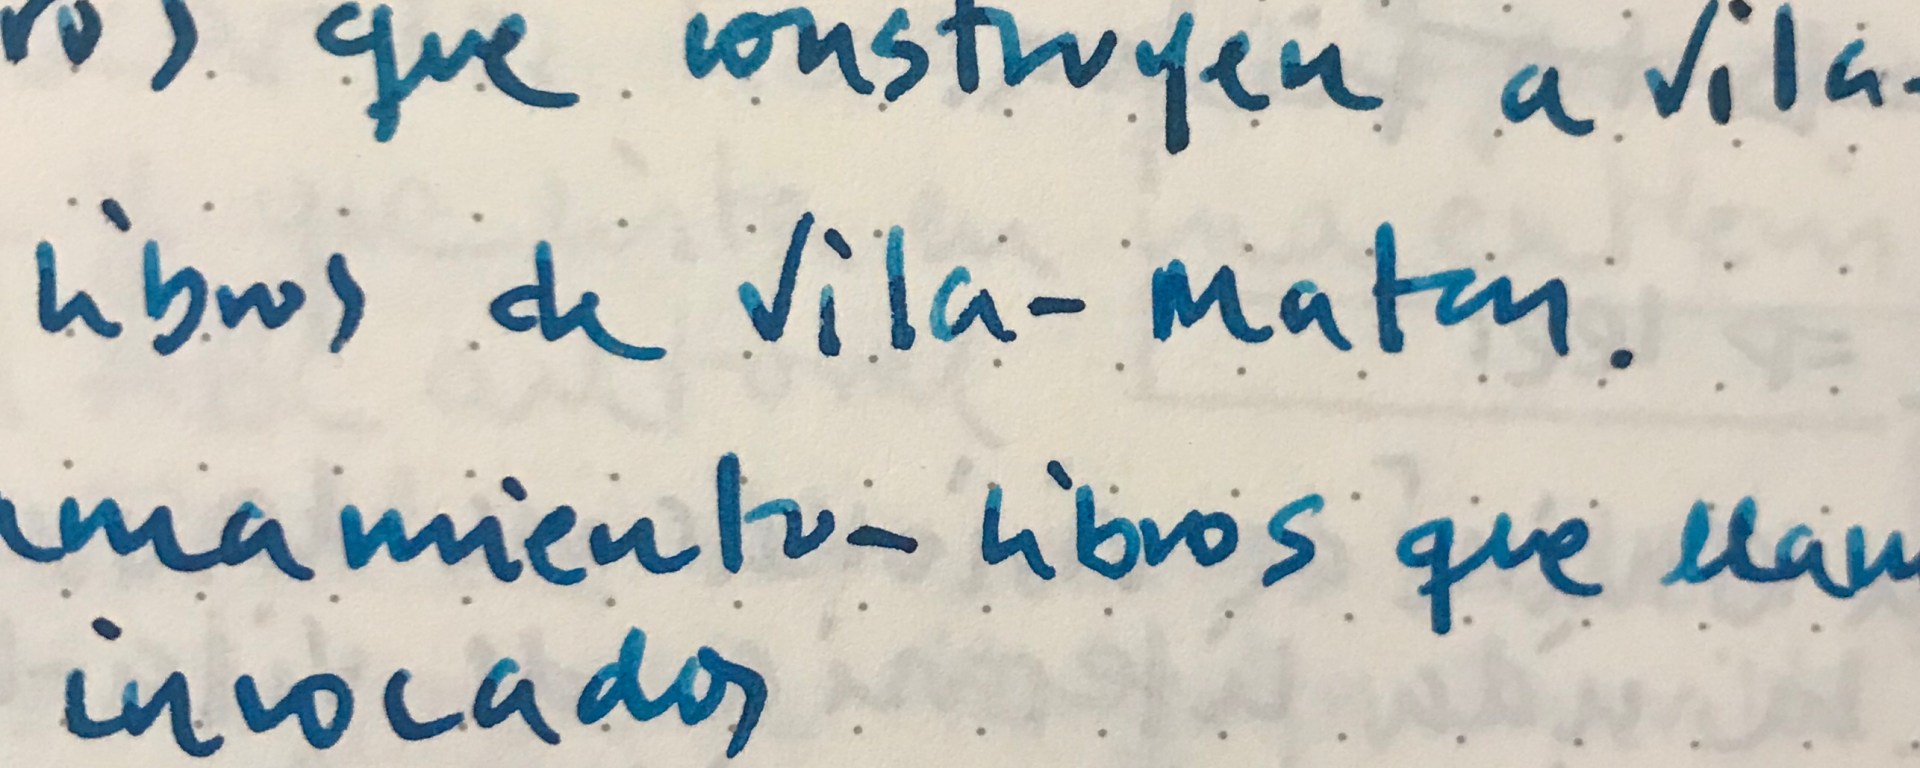 ros que construyen a Vila-
libros de Vila-Matas.
amamiento- libros que llam
invocados